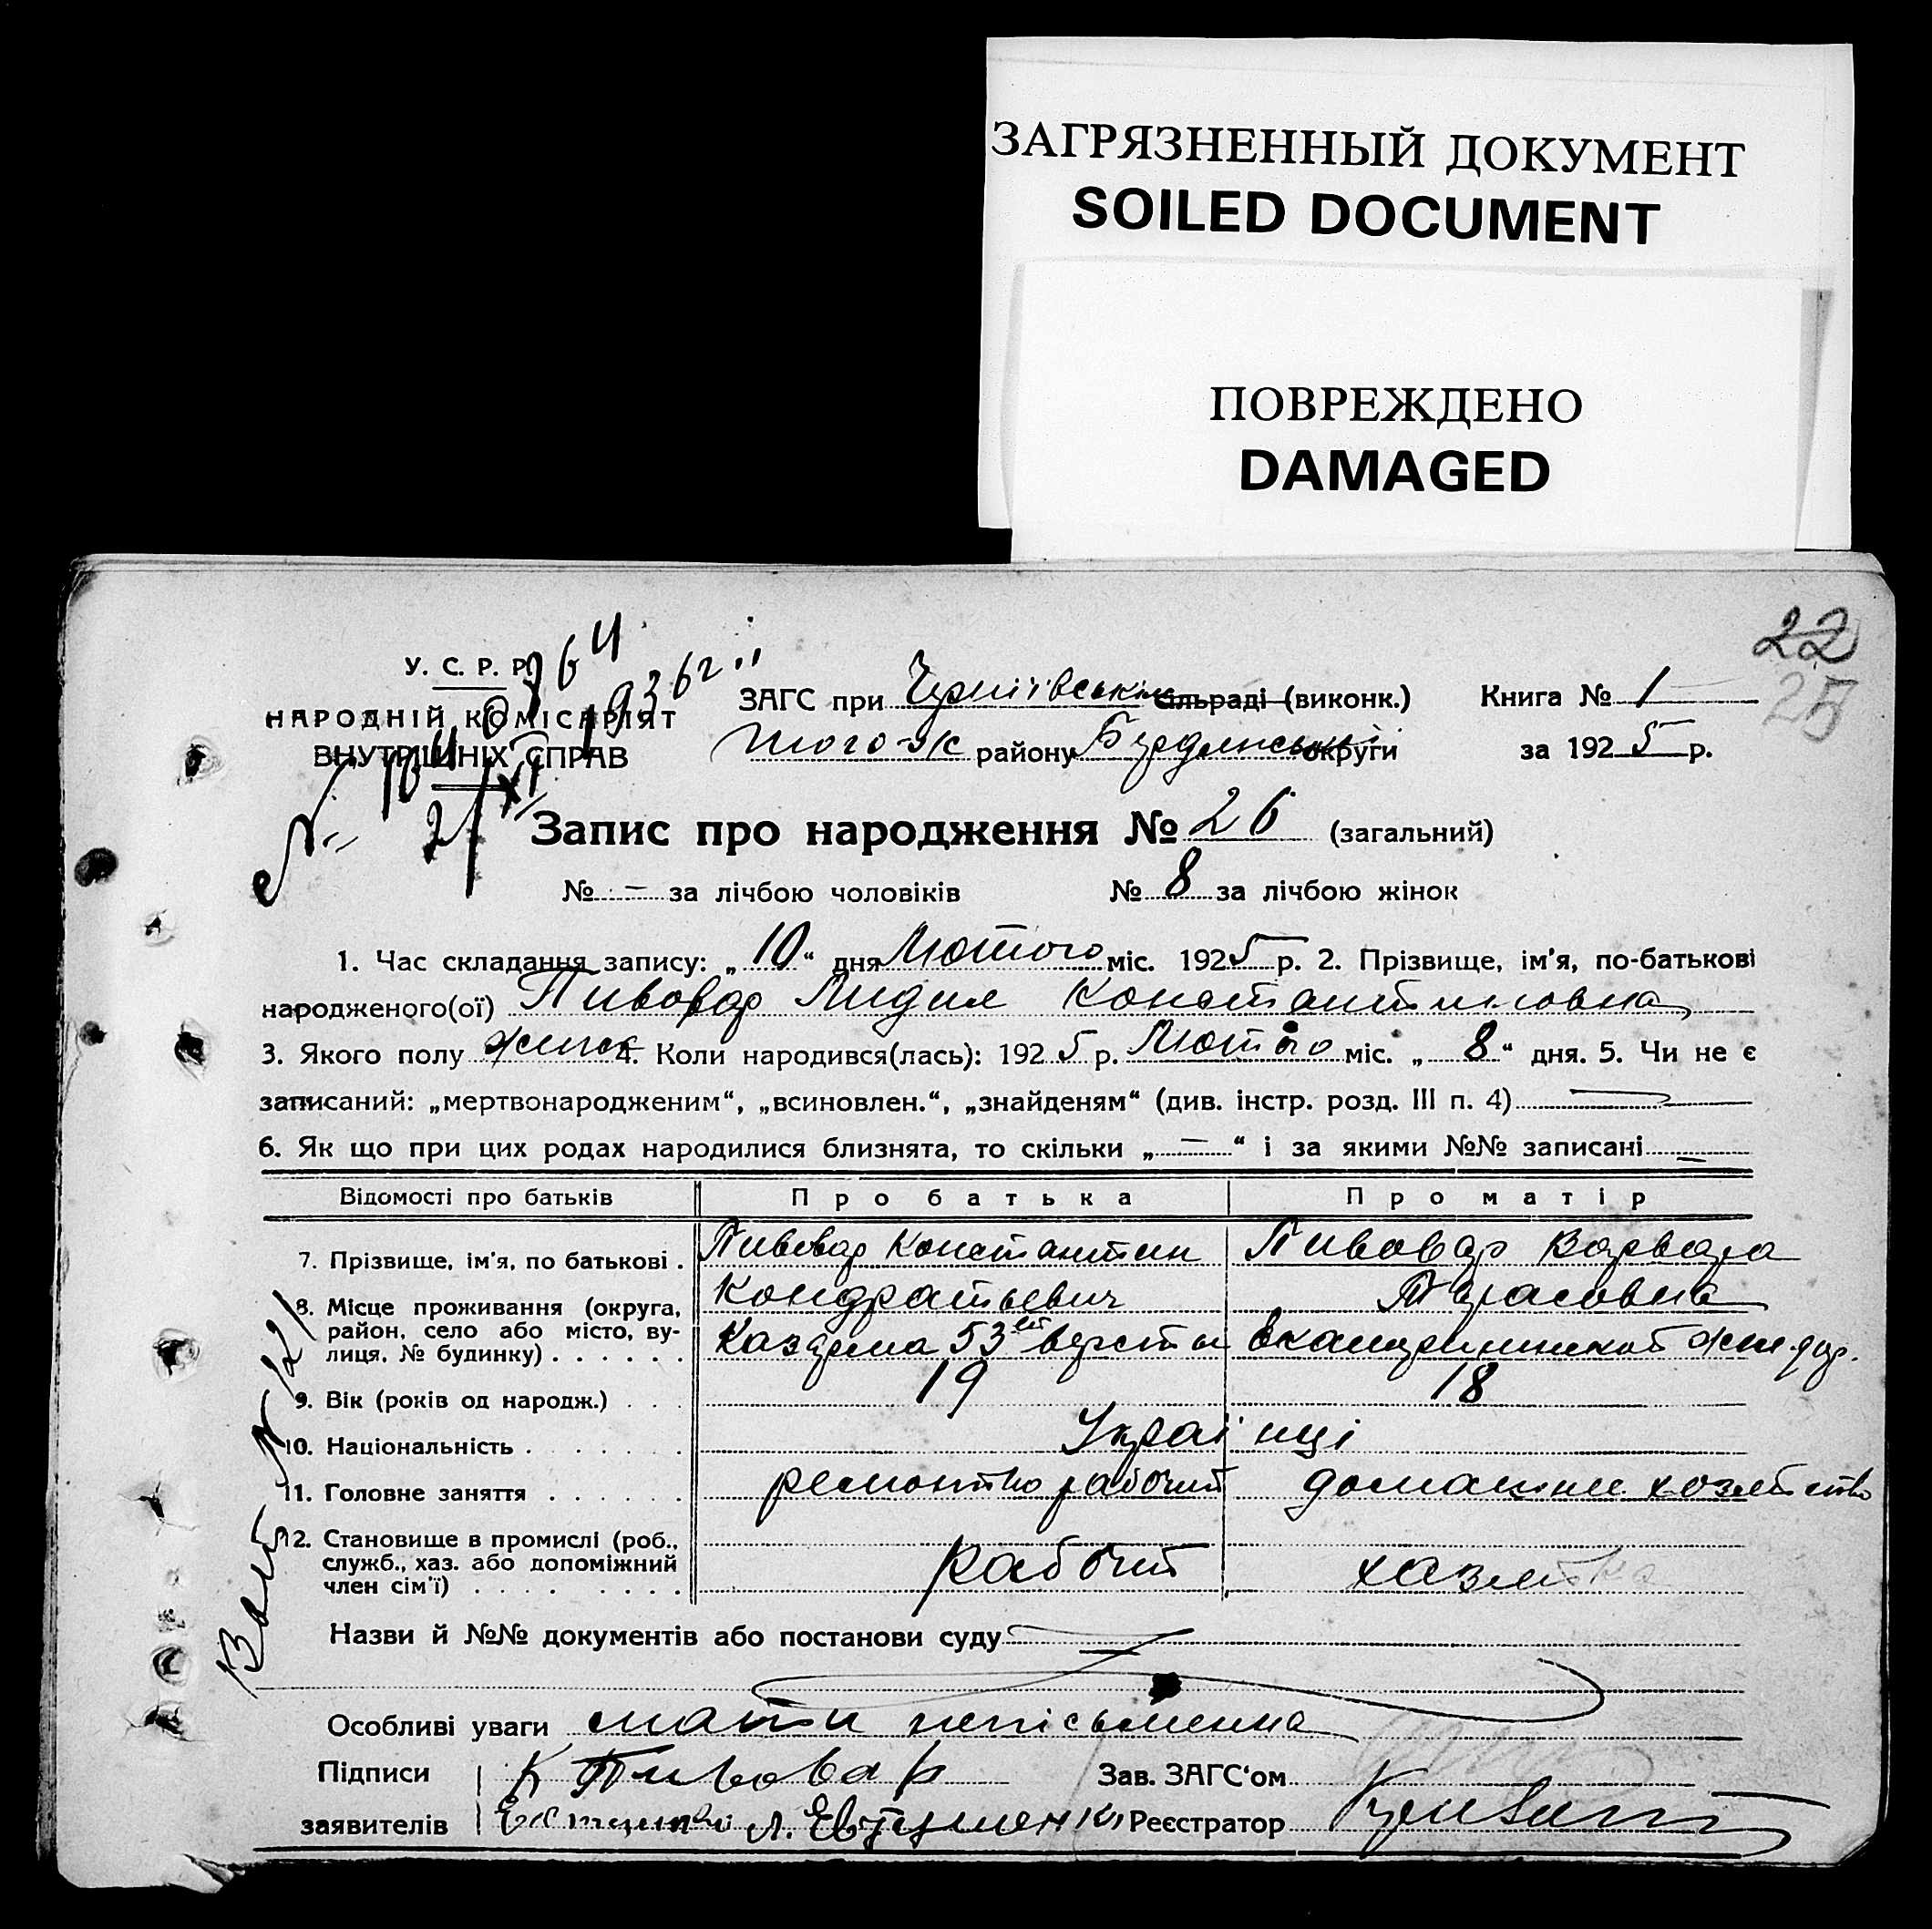 ЗАГРЯЗНЕННЫЙ ДОКУМЕНТ
SOILED DOCUMENT
ПОВРЕЖДЕНО
DAMAGED
22
25
У. С. Р. Р.
НАРОДНІЙ КОМІСАРІЯТ
ВНУТРІШНІХ СПРАВ
1936 г.
ЗАГС при сільраді (виконк.) Книга № 1
того-ж району Бердянської округи за 1925 р.
Запис про народження № 26 (загальний)
№ — за лічбою чоловіків № 8 за лічбою жінок
1. Час складання запису: „10“ дня Лютого міс. 1925 р. 2. Прізвище, ім’я, по-батькові
народженого(ої) Пивовар Лидия Константиновна
3. Якого полу жіноч 4. Коли народився(лась): 1925 р. Лютого міс. „8“ дня. 5. Чи не є
записаний: „мертвонародженим“, „всиновлен.“, „знайденям“ (див. інстр. розд. III п. 4) —
6. Як що при цих родах народилися близнята, то скільки „—“ і за якими №№ записані —
Відомості про батьків Про батька Про матір
7. Прізвище, ім’я, по батькові . Пивовар Константин Кондратьевич Пивовар Варвара Тарасовна
8. Місце проживання (округа, район, село або місто, вулиця, № будинку) . . . . . . Казарма 53ей версты Екатерининской жел. дор.
9. Вік (років од народж.) . . . 19 18
10. Національність . . . . . . . Українці
11. Головне заняття . . . . . . ремонтно рабочий домашнее хозяйство
12. Становище в промислі (роб., служб., хаз. або допоміжний член сім’ї) . . . . . . . . рабочий хазяйка
Назви й №№ документів або постанови суду —
Особливі уваги мати неписьменна
Підписи К Пивовар Зав. ЗАГС‘ом
заявителів Л. Евтушенко Реєстратор